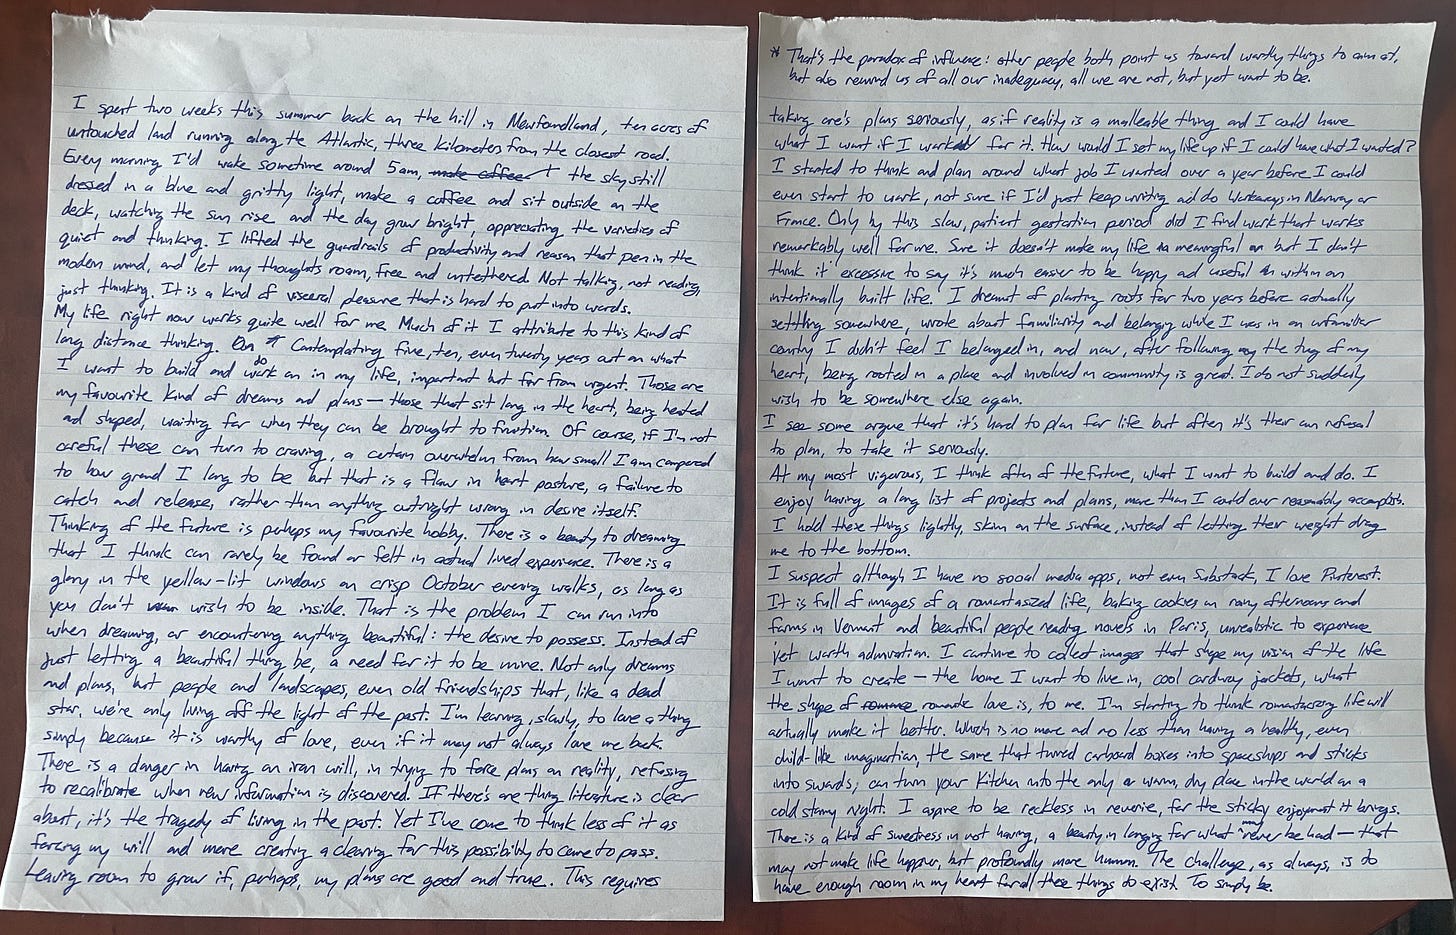 I spent two weeks this summer back on the hill in Newfoundland, ten acres of
untouched land running along the Atlantic, three kilometers from the closest road.
Every morning I'd wake sometime around 5am, make coffee the sky still
dressed in a blue and gritty light, make a coffee and sit outside on the
deck, watching the sun rise and the day grow bright, appreciating the varieties of
quiet and thinking. I lifted the guardrails of productivity and reason that pen in the
modern mind, and let my thoughts roam, free and untethered. Not talking, not reading,
just thinking. It is a kind of visceral pleasure that is hard to put into words.
My life right now works quite well for me. Much of it I attribute to this kind of
long distance thinking. Contemplating five, ten, even twenty years out on what
I want to build and do work on in my life, important but far from urgent. Those are
my favourite kind of dreams and plans — those that sit long in the heart, being heated
and shaped, waiting for when they can be brought to fruition. Of course, if I'm not
careful these can turn to craving, a certain overwhelm from how small I am compared
to how grand I long to be but that is a flaw in heart posture, a failure to
catch and release, rather than anything outright wrong in desire itself.
Thinking of the future is perhaps my favourite hobby. There is a beauty to dreaming
that I think can rarely be found or felt in actual lived experience. There is a
glory in the yellow-lit windows on crisp October evening walks, as long as
you don't wish to be inside. That is the problem I can run into
when dreaming, or encountering anything beautiful: the desire to possess. Instead of
just letting a beautiful thing be, a need for it to be mine. Not only dreams
and plans, but people and landscapes, even old friendships that, like a dead
star, we're only living off the light of the past. I'm learning, slowly, to love a thing
simply because it is worthy of love, even if it may not always love me back.
There is a danger in having an iron will, in trying to force plans on reality, refusing
to recalibrate when new information is discovered. If there's one thing literature is clear
about, it's the tragedy of living in the past. Yet I've come to think less of it as
forcing my will and more creating a clearing for this possibility to come to pass.
Leaving room to grow if, perhaps, my plans are good and true. This requires
* That's the paradox of influence: other people both point us toward worthy things to aim at,
but also remind us of all our inadequacy, all we are not, but yet want to be.
taking one's plans seriously, as if reality is a malleable thing and I could have
what I want if I worked for it. How would I set my life up if I could have what I wanted?
I started to think and plan around what job I wanted over a year before I could
even start to work, not sure if I'd just keep writing and do Workaways in Norway or
France. Only by this slow, patient gestation period did I find work that works
remarkably well for me. Sure it doesn't make my life meaningful but I don't
think it excessive to say it's much easier to be happy and useful within an
intentionally built life. I dreamt of planting roots for two years before actually
settling somewhere, wrote about familiarity and belonging while I was in an unfamiliar
country I didn't feel I belonged in, and now, after following the tug of my
heart, being rooted in a place and involved in community is great. I do not suddenly
wish to be somewhere else again.
I see some argue that it's hard to plan for life but often it's their own refusal
to plan, to take it seriously.
At my most vigorous, I think often of the future, what I want to build and do. I
enjoy having a long list of projects and plans, more than I could ever reasonably accomplish.
I hold these things lightly, skim on the surface, instead of letting their weight drag
me to the bottom.
I suspect although I have no social media apps, not even Substack, I love Pinterest.
It is full of images of a romanticized life, baking cookies on rainy afternoons and
farms in Vermont and beautiful people reading novels in Paris, unrealistic to experience
yet worth admiration. I continue to collect images that shape my vision of the life
I want to create — the home I want to live in, cool corduroy jackets, what
the shape of romance romantic love is, to me. I'm starting to think romanticizing life will
actually make it better. Which is no more and no less than having a healthy, even
child-like imagination, the same that turned carboard boxes into spaceships and sticks
into swords, can turn your kitchen into the only warm, dry place in the world on a
cold stormy night. I aspire to be reckless in reverie, for the sticky enjoyment it brings.
There is a kind of sweetness in not having, a beauty in longing for what may never be had — that
may not make life happier, but profoundly more human. The challenge, as always, is to
have enough room in my heart for all these things to exist. To simply be.